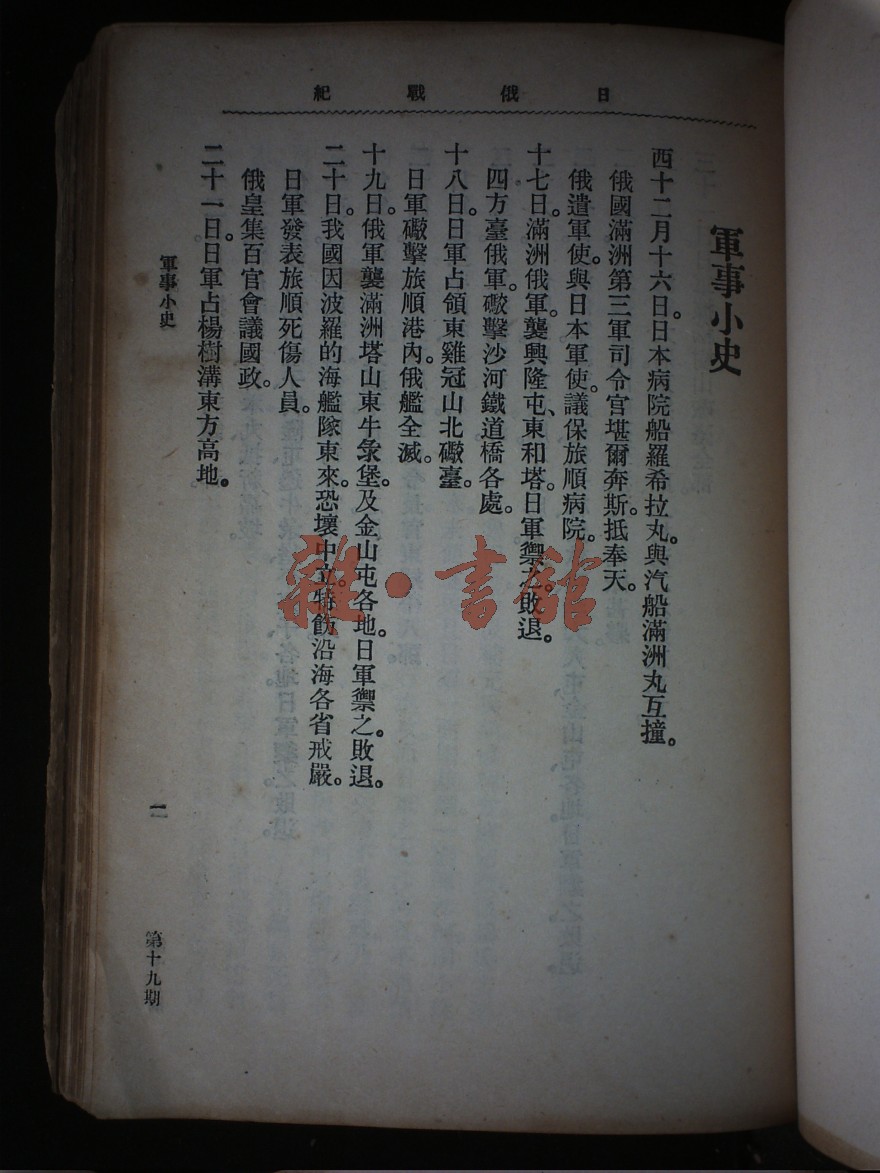 日俄戰紀
軍事小史
西十二月十六日。日本病院船羅希拉丸。與汽船滿洲丸互撞。
俄國滿洲第三軍司令官堪爾奔斯。抵奉天。
俄遣軍使。與日本軍使。議保旅順病院。
十七日。滿洲俄軍。襲興隆屯、東和塔。日軍禦之。敗退。
四方臺俄軍。礮擊沙河鐵道橋各處。
十八日。日軍占領東雞冠山北礮臺。
日軍礮擊旅順港內。俄艦全滅。
十九日。俄軍襲滿洲塔山東牛彔堡。及金山屯各地。日軍禦之。敗退。
二十日。我國因波羅的海艦隊東來。恐壞中立。特飭沿海各省戒嚴。
日軍發表旅順死傷人員。
俄皇集百官會議國政。
二十一日。日軍占楊樹溝東方高地。
軍事小史
第十九期
雜·書館